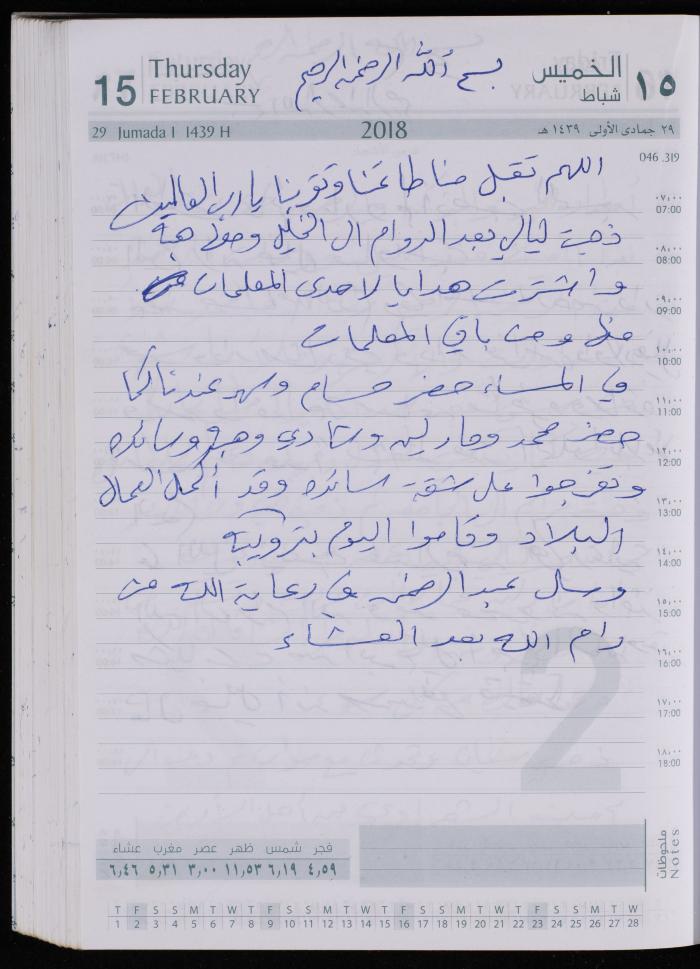 15 Thursday FEBRUARY
بسم الله الرحمن الرحيم
الخميس ١٥ شباط
29 Jumada I 1439 H 2018 ٢٩ جمادى الأولى ١٤٣٩ هـ
046 .319
اللهم تقبل منا طاعتنا وتوبنا يا رب العالمين
ذهبت ليالي بعد الدوام الى الخليل ومعها هبة
واشترت هدايا لاحدى المعلمات
منها ومن باقي المعلمات
في المساء حضر حسام وسهر عندنا كما
حضر محمد ومارلين وشادي وهبة وسائده
وتفرجوا على شقة سائده وقد أكمل العمال
البلاط وقاموا اليوم بترويبه
وصل عبد الرحمن في رعاية الله من
رام الله بعد العشاء
٠٧:٠٠ 07:00
٠٨:٠٠ 08:00
٠٩:٠٠ 09:00
١٠:٠٠ 10:00
١١:٠٠ 11:00
١٢:٠٠ 12:00
١٣:٠٠ 13:00
١٤:٠٠ 14:00
١٥:٠٠ 15:00
١٦:٠٠ 16:00
١٧:٠٠ 17:00
١٨:٠٠ 18:00
2
فجر شمس ظهر عصر مغرب عشاء
٤,٥٩ ٦,١٩ ١١,٥٣ ٣,٠٠ ٥,٣١ ٦,٤٦
ملحوظات
Notes
T F S S M T W T F S S M T W T F S S M T W T F S S M T W
1 2 3 4 5 6 7 8 9 10 11 12 13 14 15 16 17 18 19 20 21 22 23 24 25 26 27 28